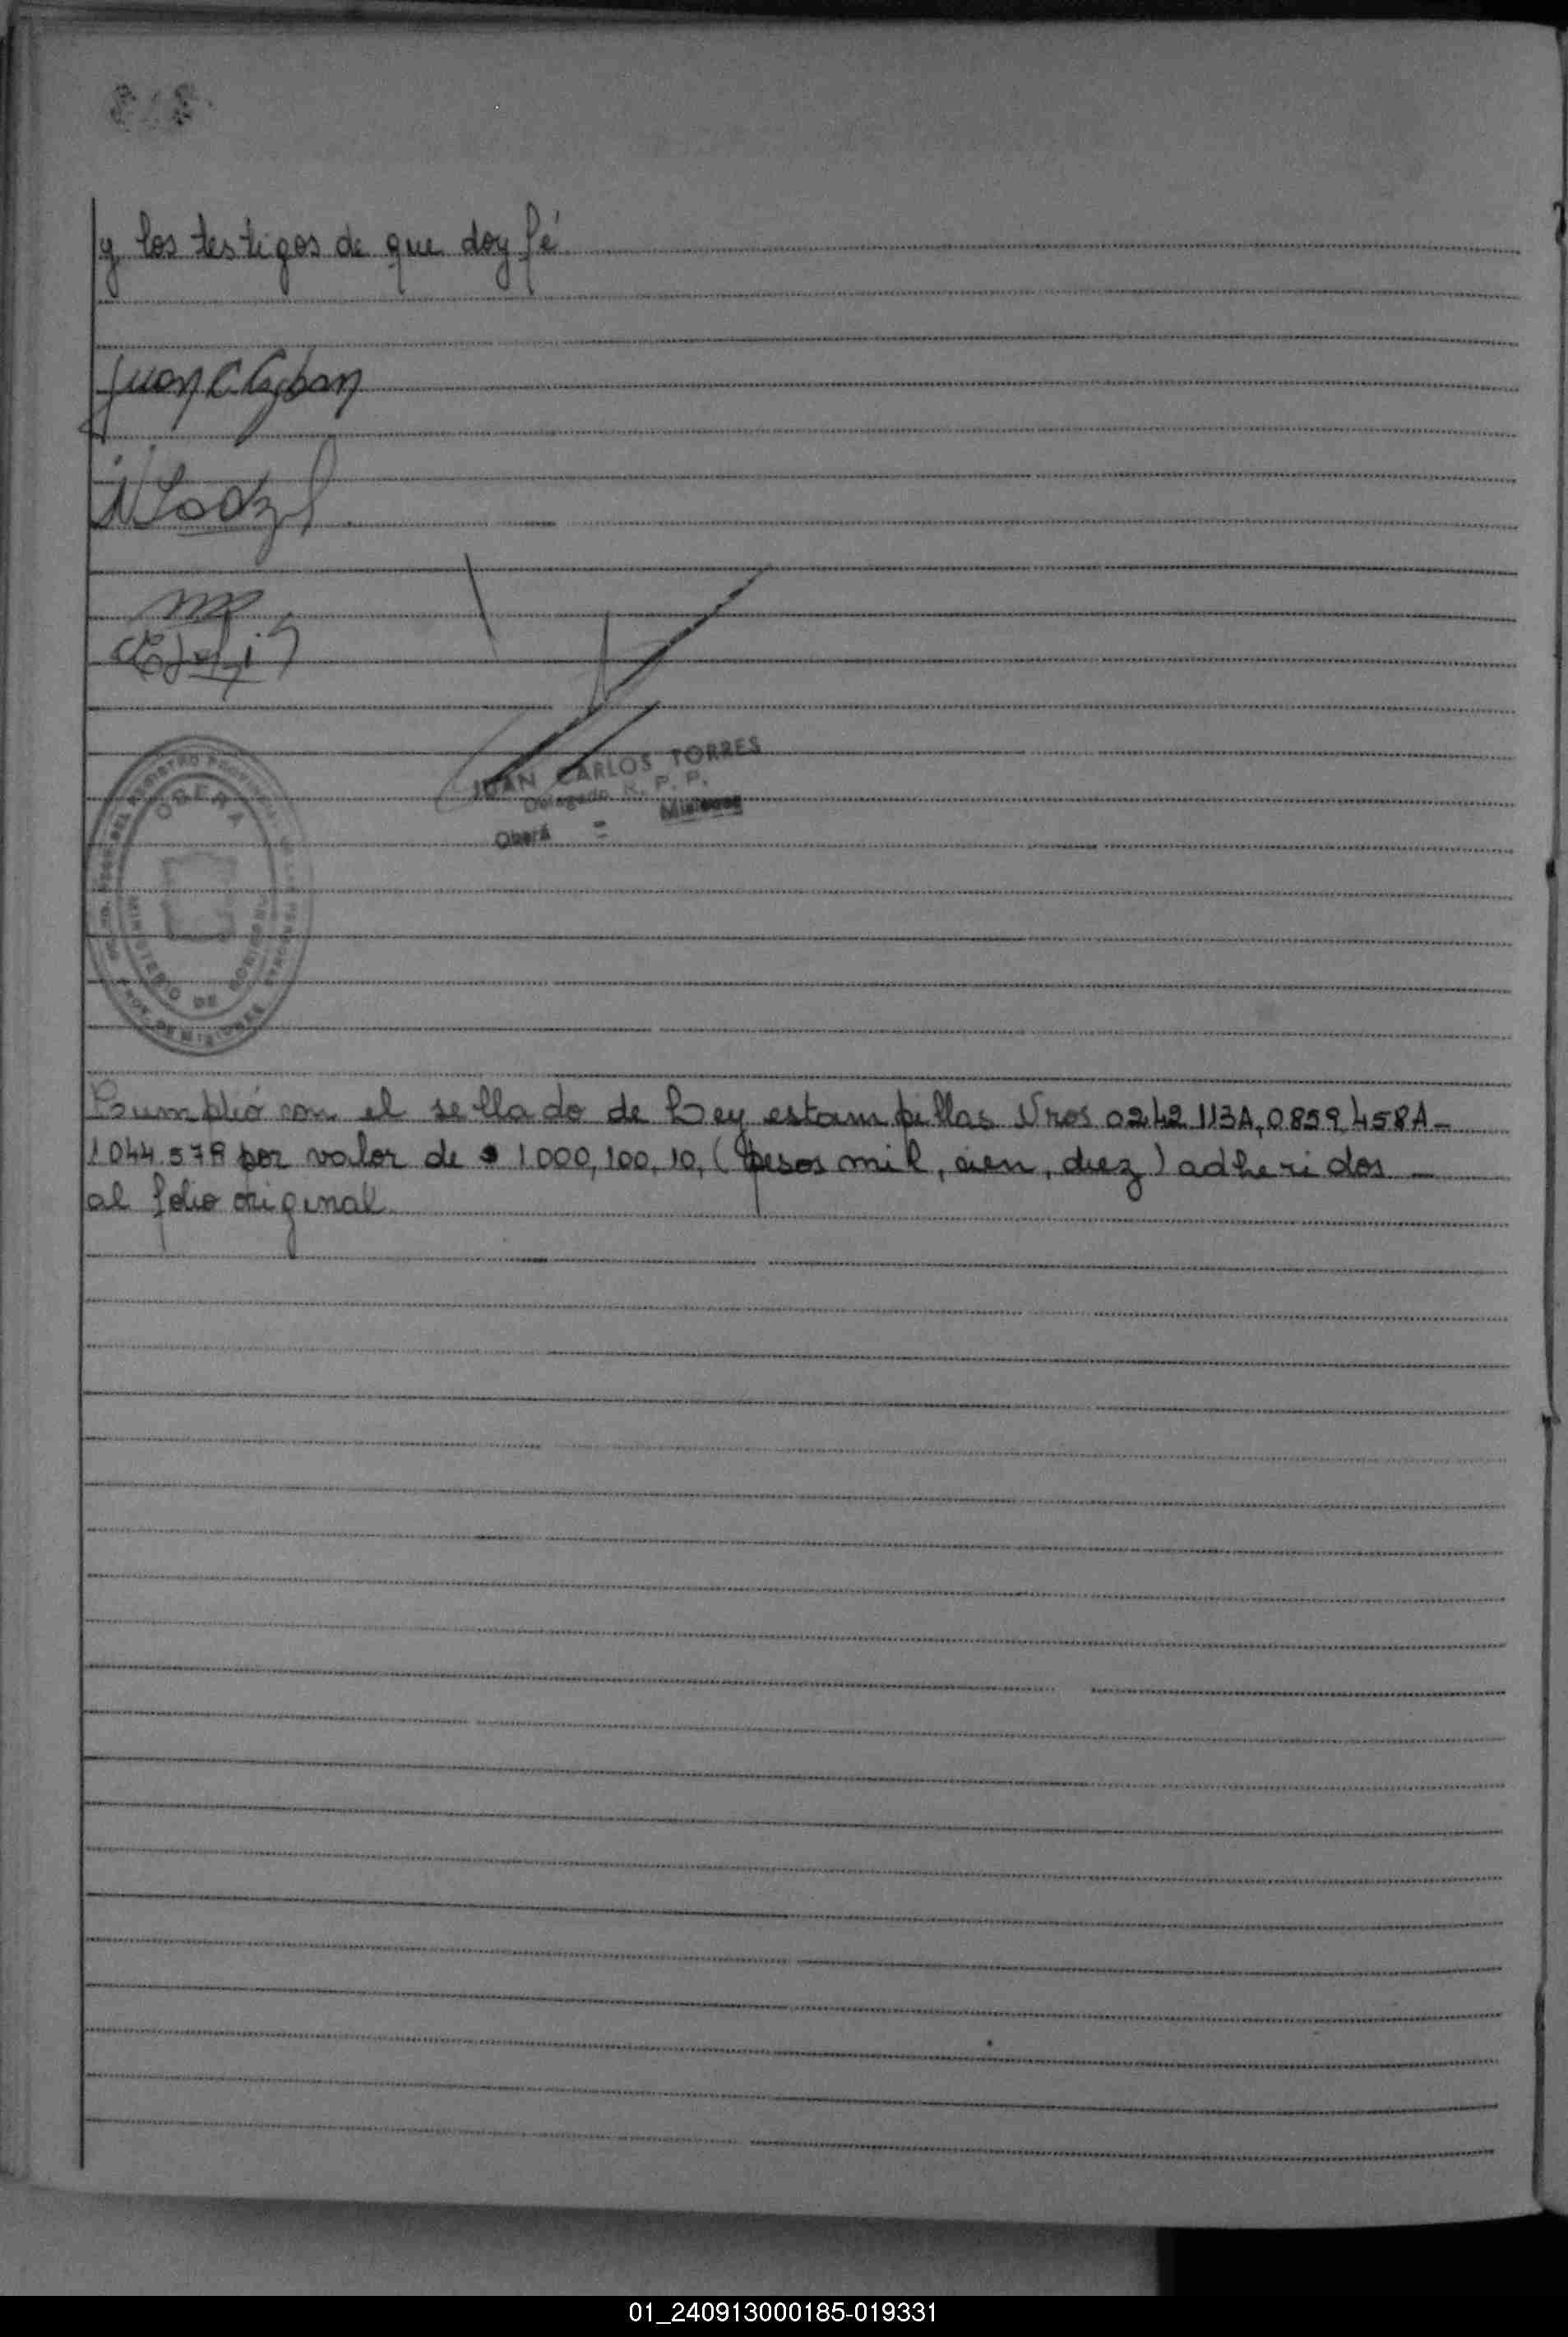 y los testigos de que doy fé
Juan C
JUAN CARLOS TORRES
Delegado R. P. P.
Oberá - Misiones
OBERA
MINISTERIO DE GOBIERNO
PROV. DE MISIONES
Cumplió con el sellado de Ley estampillas Nros 0242113A, 0859458A -
1044.578 por valor de $ 1000, 100, 10, (pesos mil, cien, diez) adheridos -
al folio original.
01_240913000185-019331